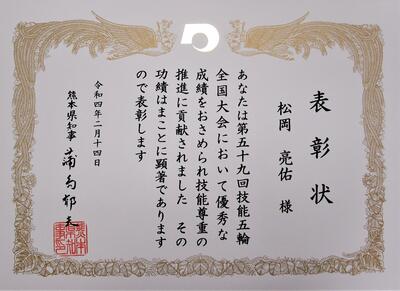 表彰状
松岡 亮佑 様
あなたは第五十九回技能五輪
全国大会において優秀な
成績をおさめられ技能尊重の
推進に貢献されました その
功績はまことに顕著であります
ので表彰します
令和四年二月十四日
熊本県知事 蒲島郁夫